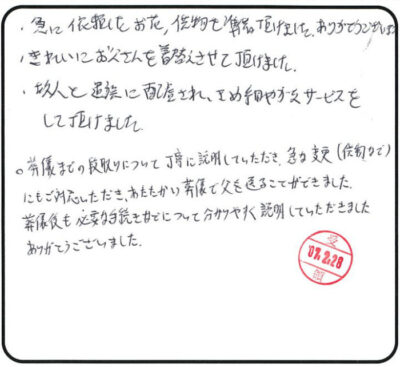 ・急に依頼したお花、供物も準備頂けました。ありがとうござい
・きれいにお父さんを着替えさせて頂けました。
・故人と遺族に配慮され、きめ細やかなサービスを
して頂けました。
○葬儀までの段取りについて丁寧に説明していただき、急な変更(供物など)
にもご対応いただき、あたたかい葬儀で父を送ることができました。
葬儀後も必要な手続きなどについて分かりやすく説明していただきました
ありがとうございました。
受
07.2.28